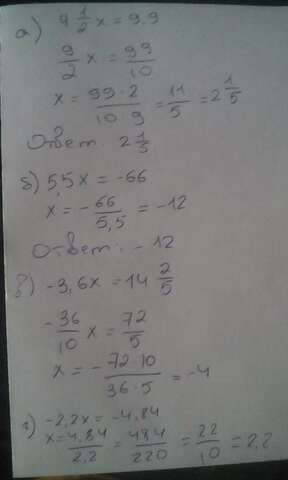 а) 4 1/2 x = 9,9
9/2 x = 99/10
x = 99·2/10·9 = 11/5 = 2 1/5
Ответ: 2 1/5.
б) 5,5x = -66
x = -66/5,5 = -12
Ответ: -12
в) -3,6x = 14 2/5
-36/10 x = 72/5
x = -72·10/36·5 = -4
г) -2,2x = -4,84
x = 4,84/2,2 = 484/220 = 22/10 = 2,2